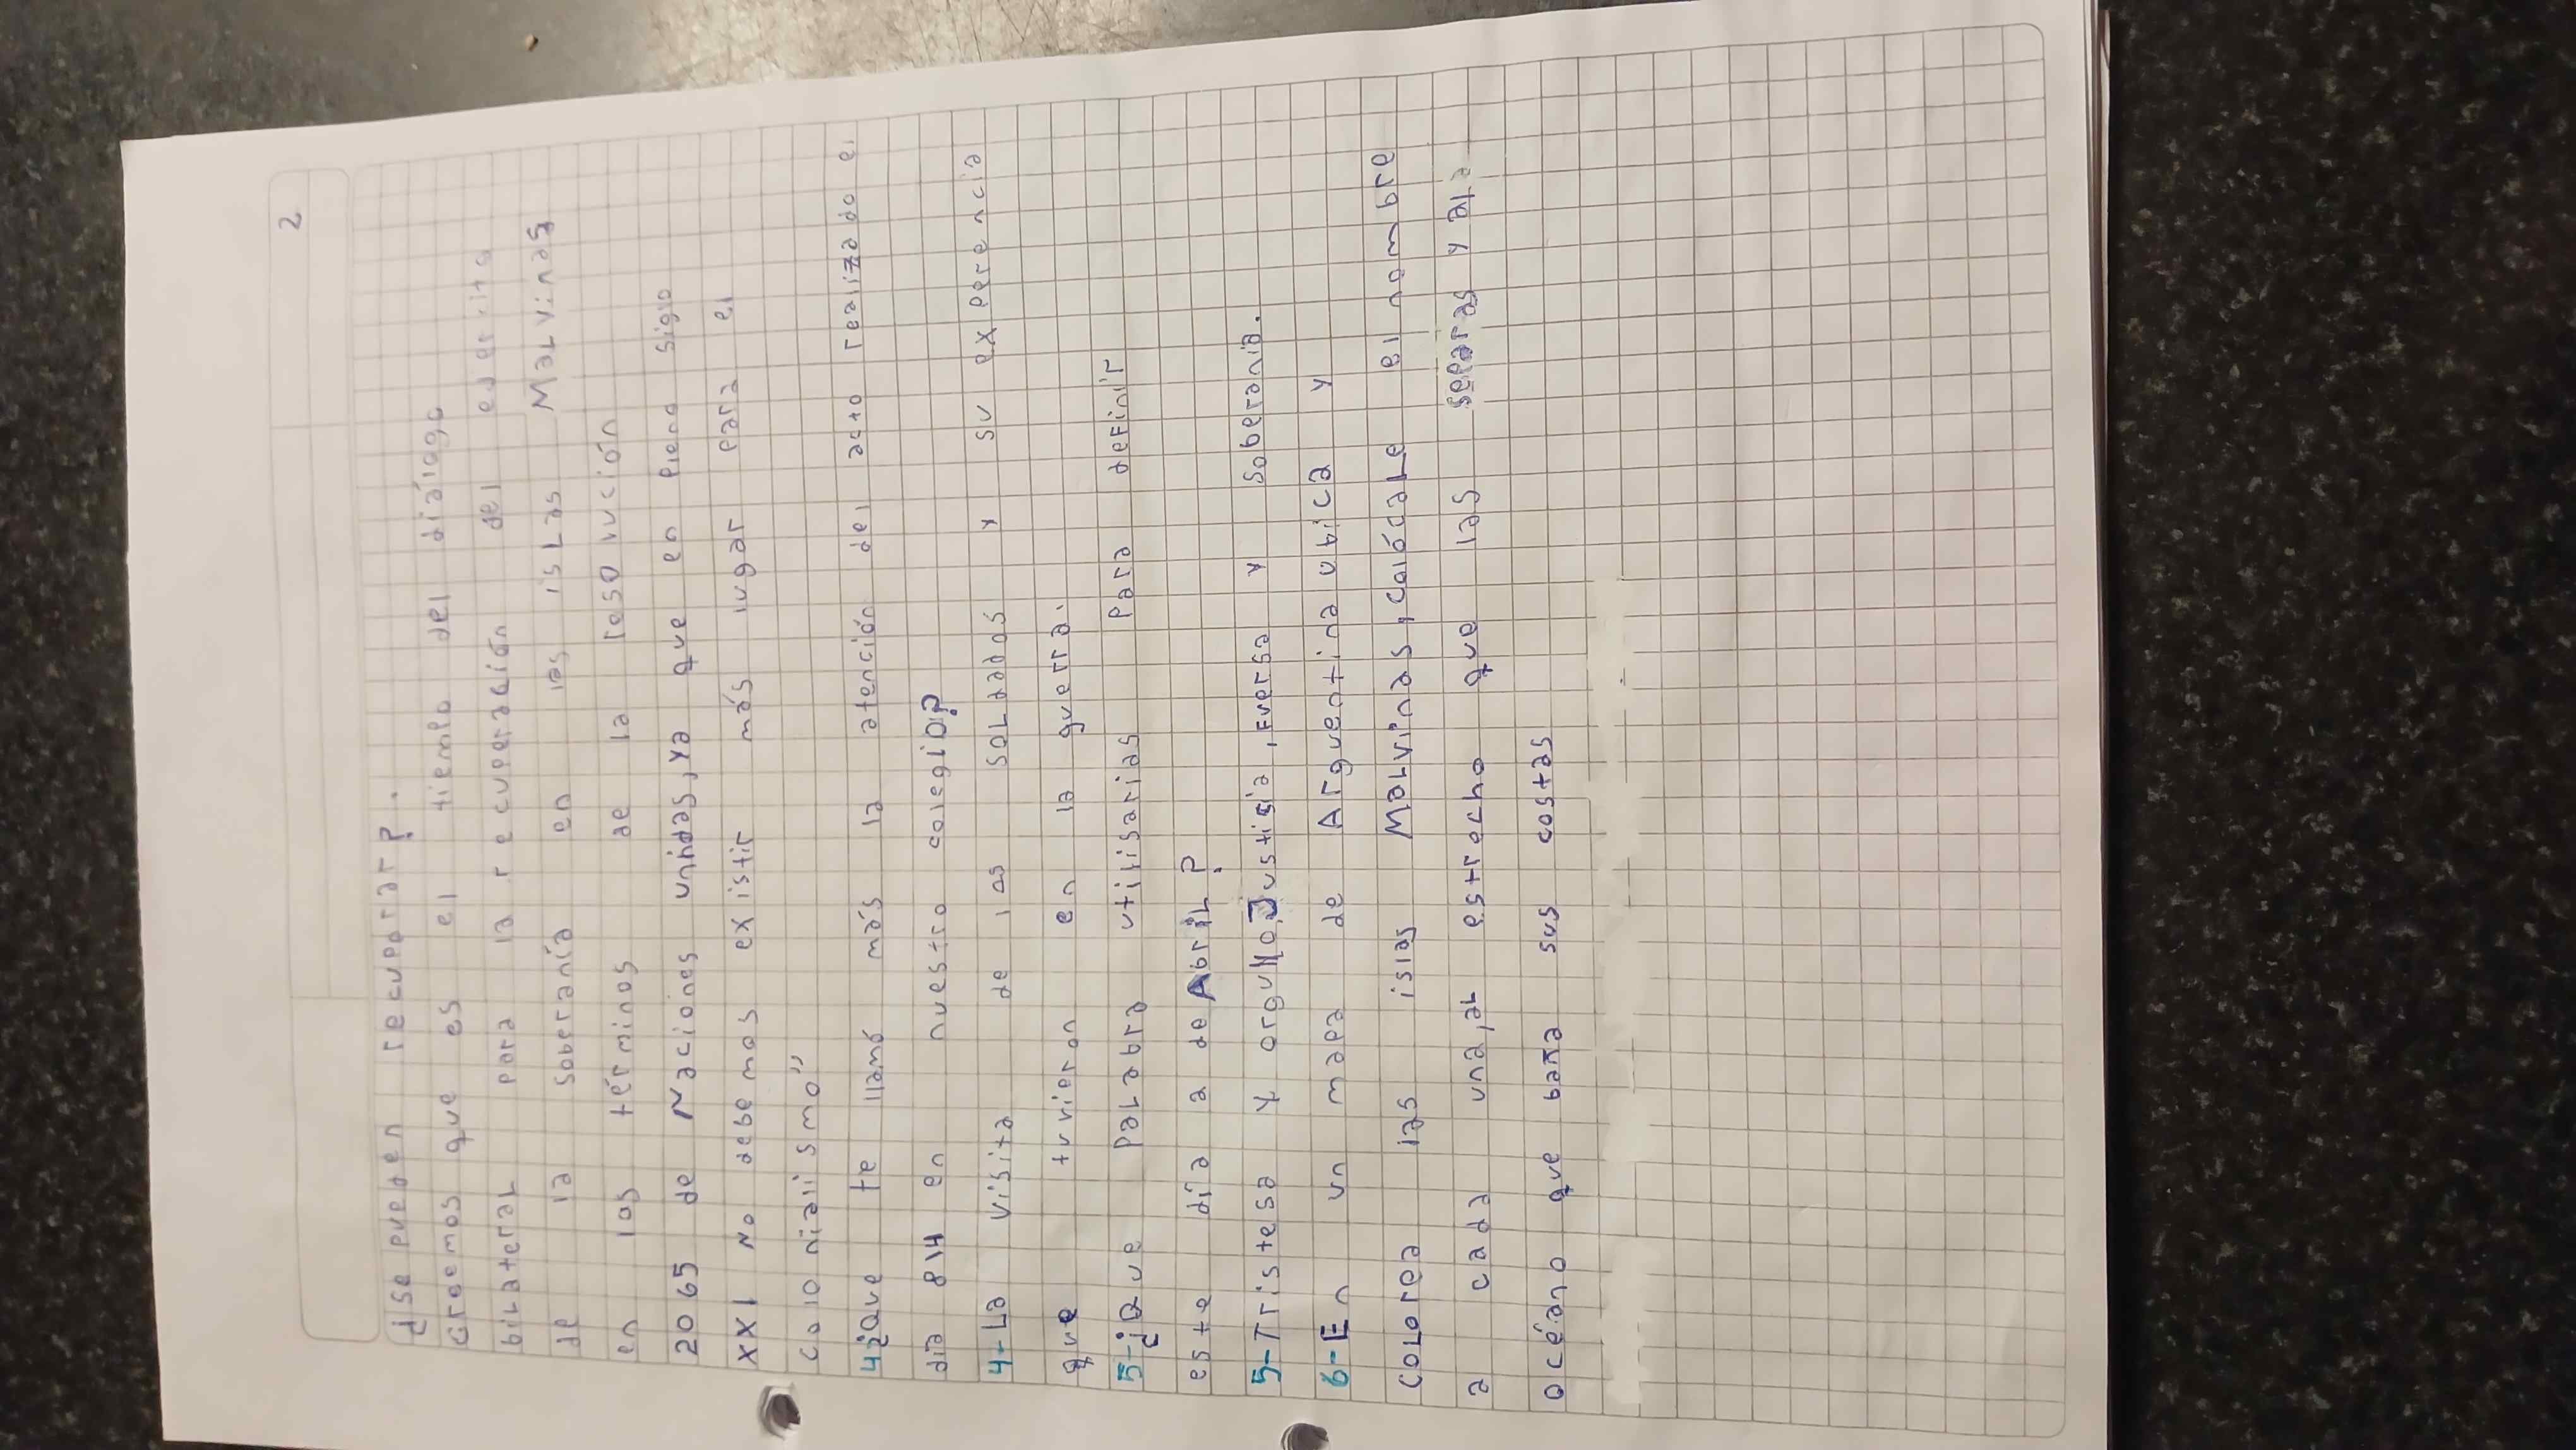 2
¿se pueden recuperar?.
Creemos que es el tiempo del diálogo
bilateral para la recuperación del ejercito
de la soberanía en las isLas Malvinas
en los términos de la resolución
2065 de Naciones unidas, ya que en pleno siglo
XXI No debemos existir más lugar para el
colonialismo"
4¿Que te llamó más la atención del acto realizado el
día 8/4 en nuestro colegio?
4-La visita de los soLdados y su experencia
que tuvieron en la guerra.
5-¿Que paLabra utilisarias para definir
este día 2 de AbriL?
5-Tristesa y orgullo, Justisia, Fuersa y soberania.
6-En un mapa de Arguentina ubica y
coLorea las islas MaLvinas, colócaLe el nombre
a cada una, aL estrecho que las separas y aLa
océano que baña sus costas